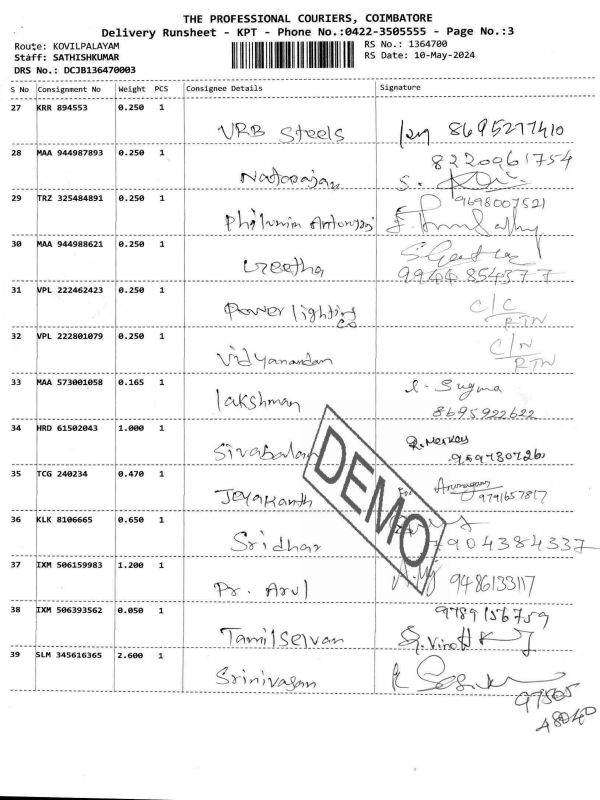 THE PROFESSIONAL COURIERS, COIMBATORE
Delivery Runsheet - KPT - Phone No.:0422-3505555 - Page No.:3
Route: KOVILPALAYAM RS No.: 1364700
Staff: SATHISHKUMAR RS Date: 10-May-2024
DRS No.: DCJB136470003
S No Consignment No Weight PCS Consignee Details Signature
27 KRR 894553 0.250 1
VRB Steels 8695277410
28 MAA 944987893 0.250 1 8220961754
Natarajan S.
29 TRZ 325484891 0.250 1 9698007521
Philomin Antonyraj
30 MAA 944988621 0.250 1
Geetha 9944854377
31 VPL 222462423 0.250 1 C/C
Power lighting Co RTN
32 VPL 222801079 0.250 1 C/N
Vidyanandan RTN
33 MAA 573001058 0.165 1
lakshman Suguna
8695922622
34 HRD 61502043 1.000 1
Sivabalan 9597307260
35 TCG 240234 0.470 1
Jeyakanth For Arumugam
9791657817
36 KLK 8106665 0.650 1
Sridhar 7904384337
37 IXM 506159983 1.200 1
Pr. Arul 9486133117
38 IXM 506393562 0.050 1 9789156759
Tamilselvan
39 SLM 345616365 2.600 1
Srinivasan
97505
48040
DEMO